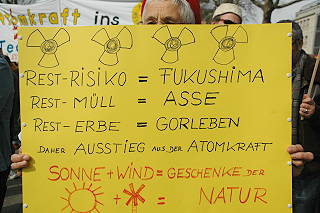 omkraft ins
REST-RISIKO = FUKUSHIMA
REST-MÜLL = ASSE
REST-ERBE = GORLEBEN
DAHER AUSSTIEG AUS DER ATOMKRAFT
SONNE + WIND = GESCHENKE DER
+ = NATUR